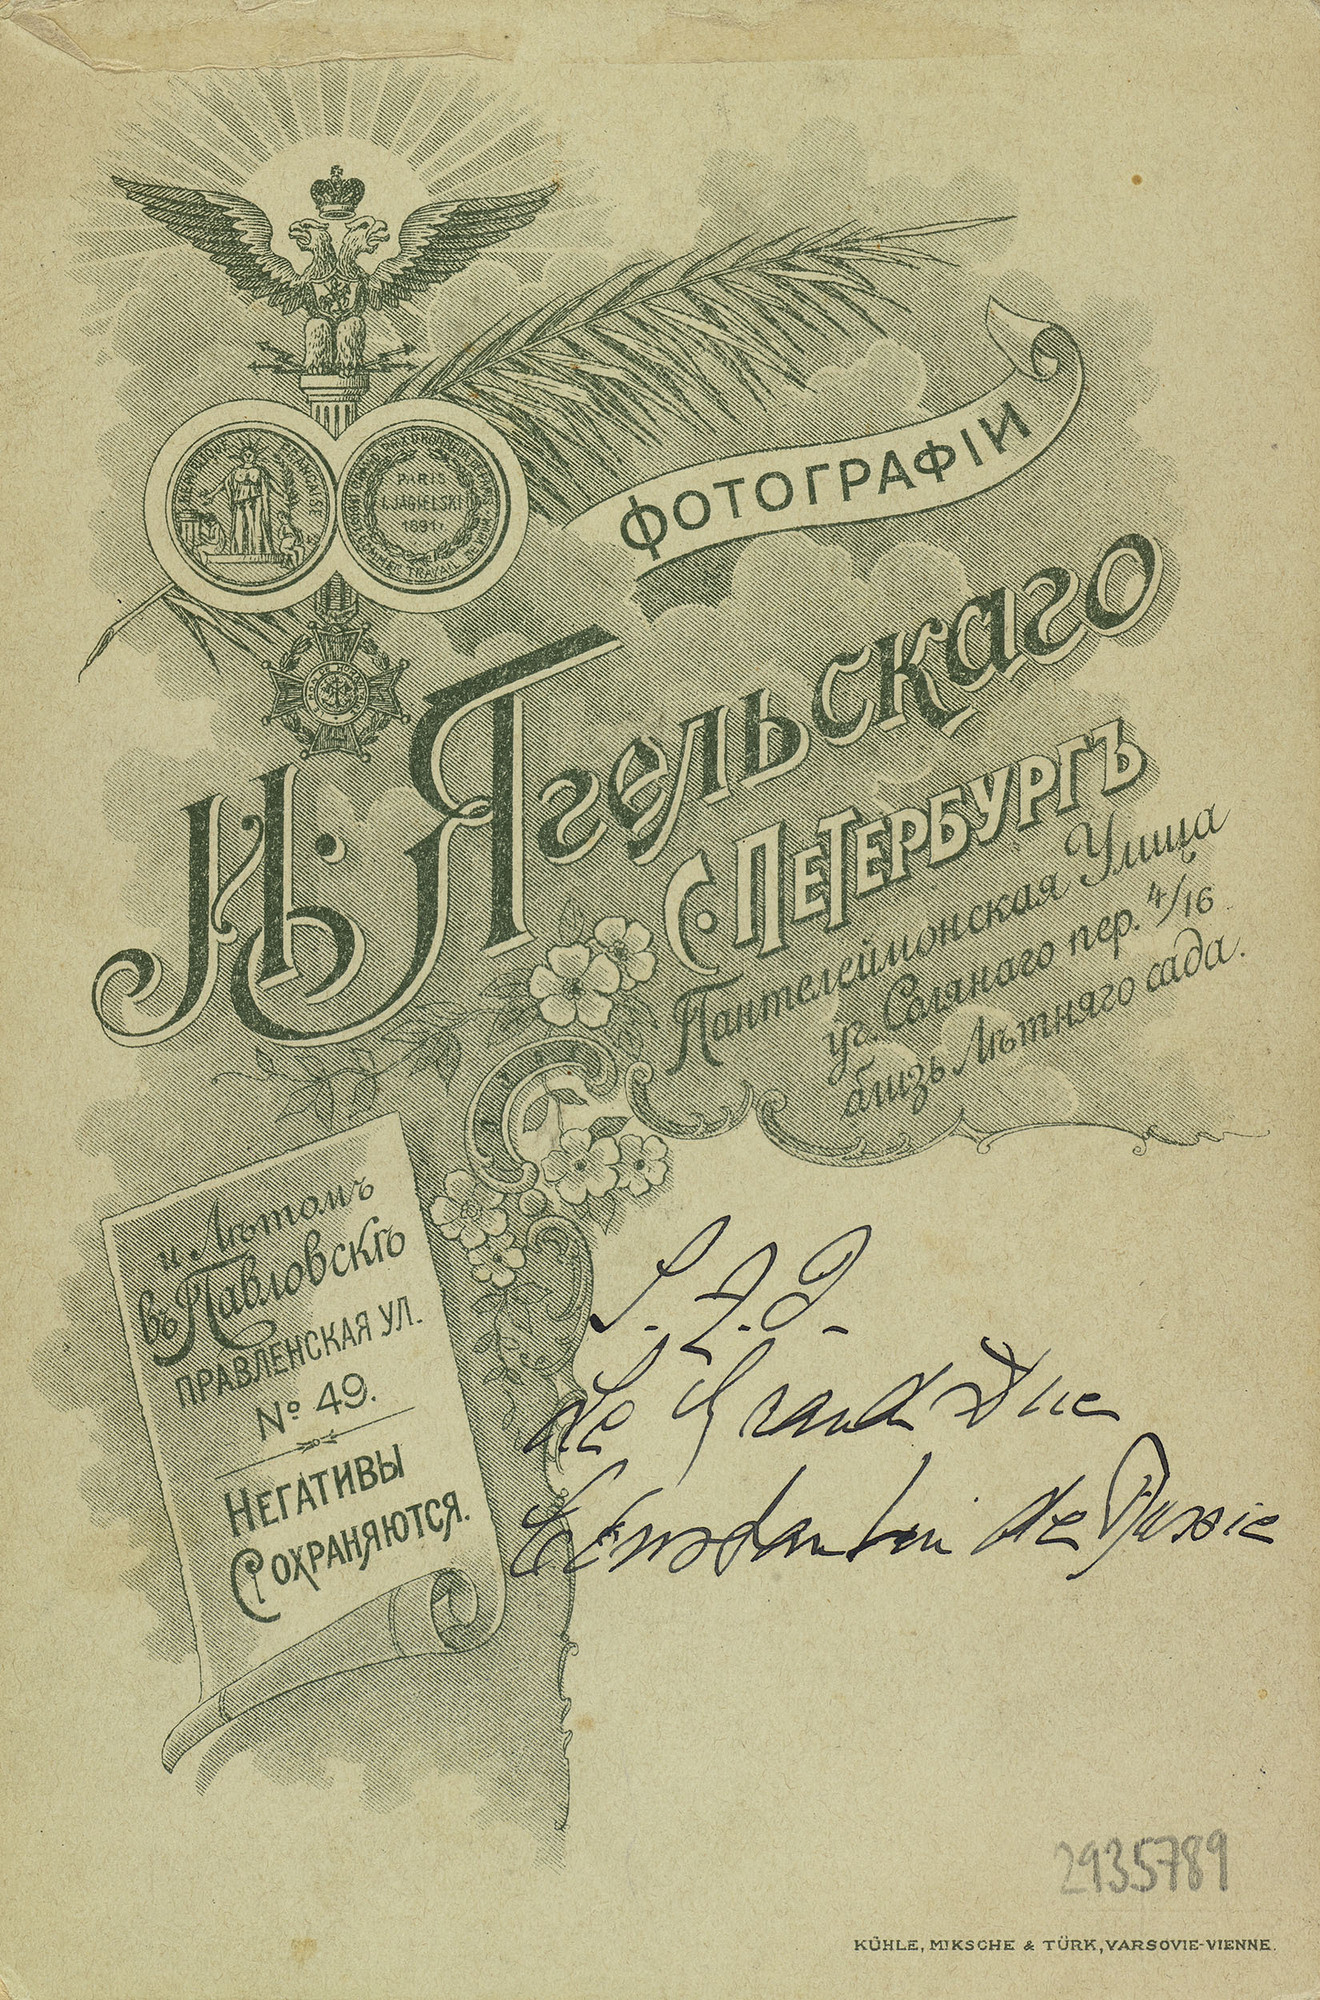 PARIS
I. JAGIELSKI
1891
ФОТОГРАФІИ
И. Ягельскаго
С. ПЕТЕРБУРГЪ
Пантелеймонская Улица
уг. Солянаго пер. 4/16
близь Лѣтняго сада.
и Лѣтомъ
въ Павловскѣ
ПРАВЛЕНСКАЯ УЛ.
№ 49.
НЕГАТИВЫ
СОХРАНЯЮТСЯ.
S. A. I.
Le Grand Duc
Constantin de Russie
2935789
KÜHLE, MIKSCHE & TÜRK, VARSOVIE-VIENNE.